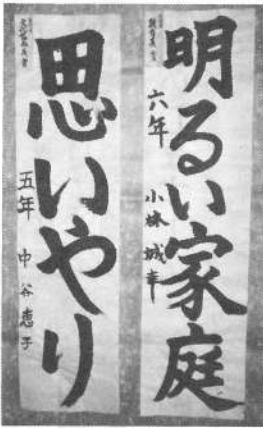 明るい家庭
六年 小林 城幸
思いやり
五年 中谷恵子